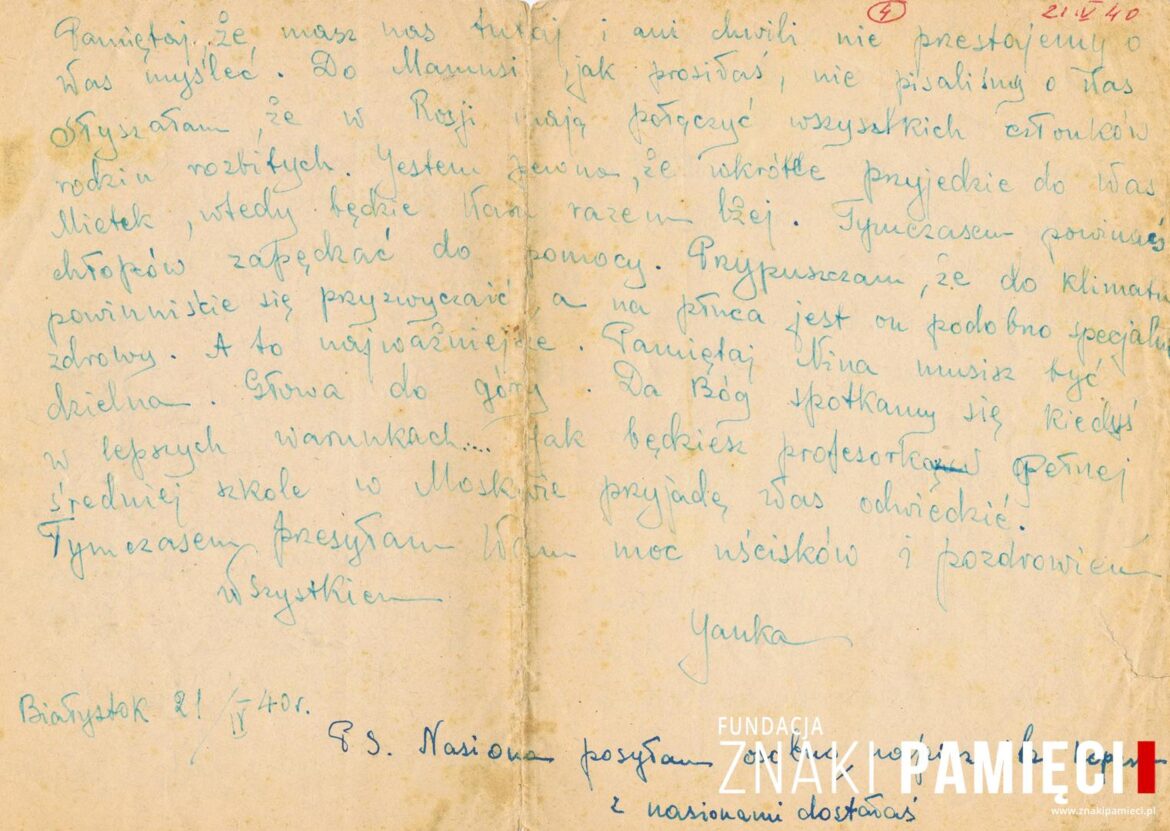 4 21.V 40
Pamiętaj, że masz nas tutaj i ani chwili nie przestajemy o
Was myśleć. Do Mamusi, jak prosiłaś, nie pisaliśmy o Was
Słyszałam, że w Rosji mają połączyć wszystkich członków
rodzin rozbitych. Jestem pewna, że wkrótce przyjedzie do Was
Mietek, wtedy będzie Wam razem lżej. Tymczasem powinnaś
chłopów zapędzać do pomocy. Przypuszczam, że do klimatu
powinniście się przyzwyczaić, a na płuca jest on podobno specjalnie
zdrowy. A to najważniejsze. Pamiętaj Nina musisz być
dzielna. Głowa do góry. Da Bóg spotkamy się kiedyś
w lepszych warunkach.... Jak będziesz profesorką w pełnej
średniej szkole w Moskwie przyjadę Was odwiedzić.
Tymczasem przesyłam Wam moc uścisków i pozdrowień
wszystkiem
Janka
Białystok 21/V 40r.
PS. Nasiona posyłam osobno, napisz ile
z nasionami dostałaś
FUNDACJA
ZNAKI PAMIĘCI
www.znakipamieci.pl